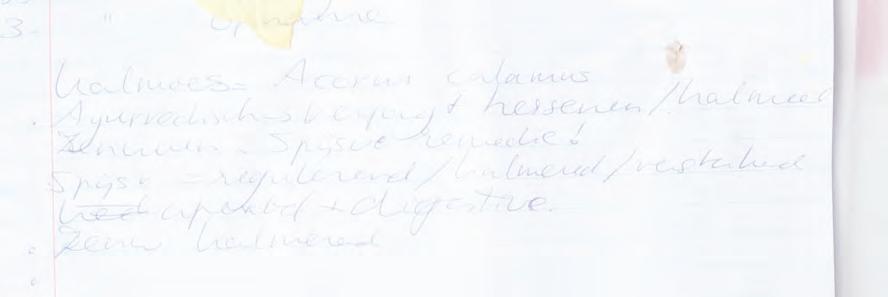 3. "
Kalmoes = Acorus calamus
Ayurvedisch = verjongt hersenen / kalmeert
Zenuwen. Spijsv remedie!
Spijsv = regulerend / kalmerend / versterkend
apetit + digestive.
Zenuw kalmerend